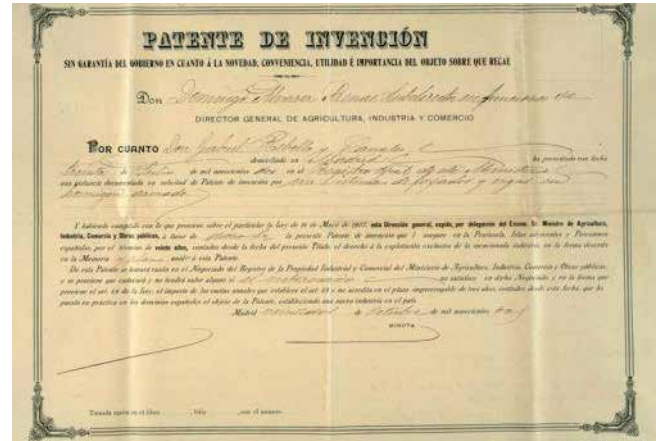 PATENTE DE INVENCIÓN
SIN GARANTÍA DEL GOBIERNO EN CUANTO Á LA NOVEDAD, CONVENIENCIA, UTILIDAD É IMPORTANCIA DEL OBJETO SOBRE QUE RECAE
Don Domingo Alvarez Arenas Subdirector en funciones de
DIRECTOR GENERAL DE AGRICULTURA, INDUSTRIA Y COMERCIO
POR CUANTO Don Gabriel Rebollo y
domiciliado en Madrid ha presentado con fecha
treinta de Julio de mil novecientos dos en el Registro de este Ministerio
una instancia documentada en solicitud de Patente de invención por un sistema de forjados y vigas en
hormigón armado
Y habiendo cumplido con lo que previene sobre el particular la ley de 16 de Mayo de 1902, esta Dirección general, expide, por delegación del Excmo. Sr. Ministro de Agricultura,
Industria, Comercio y Obras públicas, á favor de la presente Patente de invención que le asegure en la Península, Islas adyacentes y Posesiones
españolas, por el término de veinte años, contados desde la fecha del presente Título, el derecho á la explotación exclusiva de la mencionada industria, en la forma descrita
en la Memoria unida á esta Patente.
De esta Patente se tomará razón en el Negociado del Registro de la Propiedad Industrial y Comercial del Ministerio de Agricultura, Industria, Comercio y Obras públicas;
y se previene que caducará y no tendrá valor alguno si el no satisface en dicho Negociado, y en la forma que
previene el art. de la ley, el importe de las cuotas anuales que establece el art. y no acredita en el plazo improrrogable de tres años, contados desde esta fecha, que ha
puesto en práctica en los dominios españoles el objeto de la Patente, estableciendo una nueva industria en el país.
Madrid de Octubre de mil novecientos dos
MINUTA
Tomada razón en el libro , folio , con el número